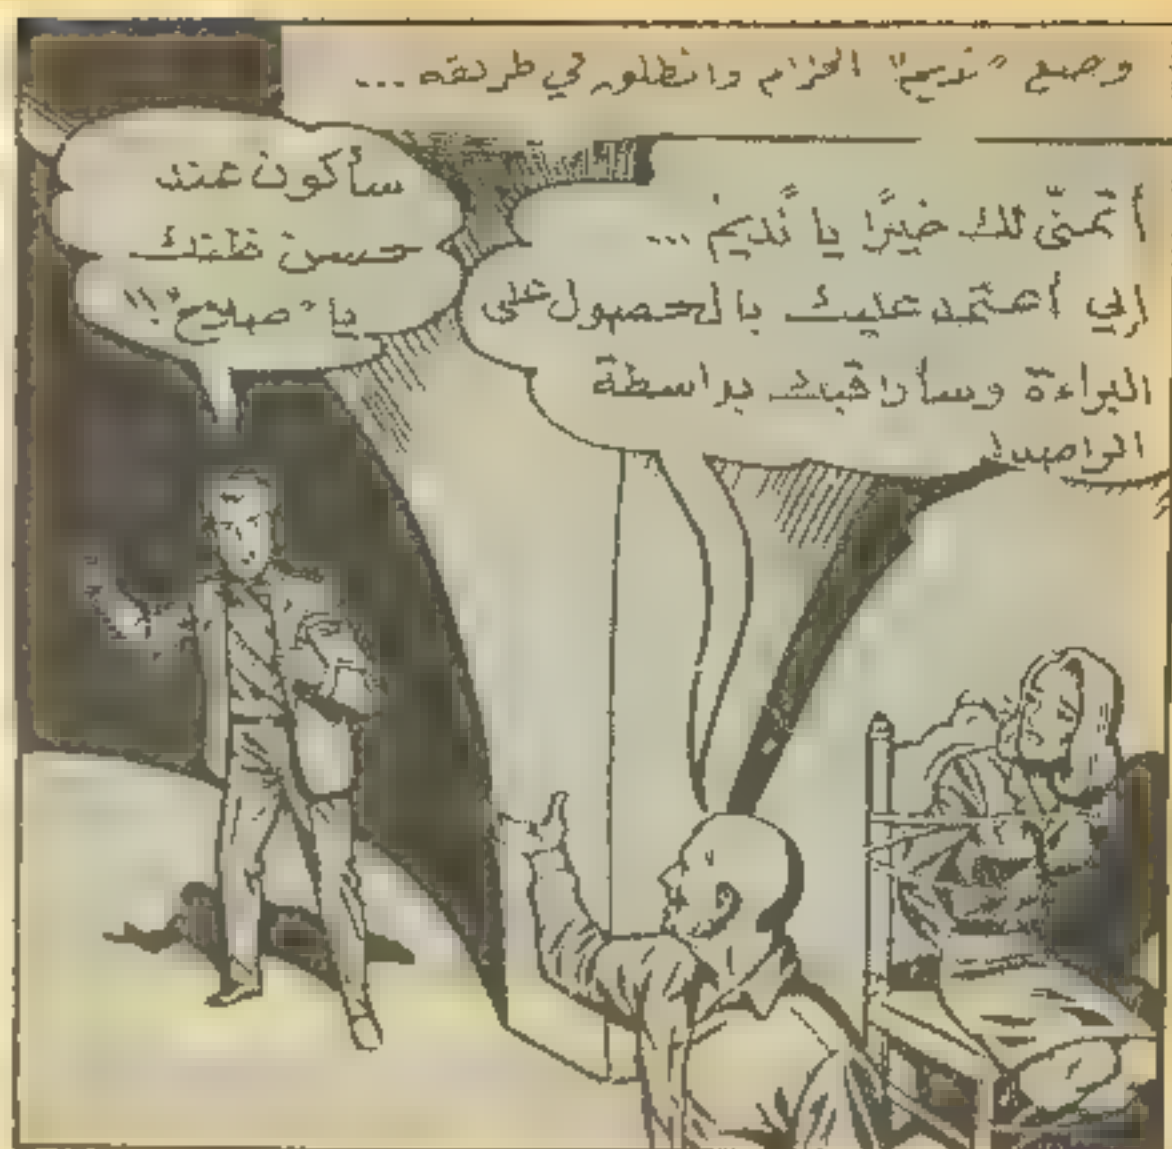 وضع "نديم" الحزام وانطلق في طريقه ...
أتمنّى لك خيرًا يا نديم ...
إني أعتمد عليك بالحصول على
البراءة وسأراقبك بواسطة
الراصد!
سأكون عند
حسن ظنك
يا "صلاح"!!